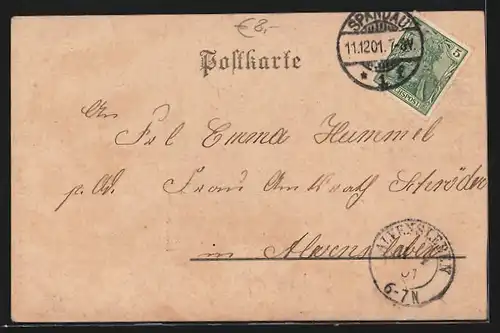 € 8,-
SPANDAU
11.12.01. 7-8V.
* 1 r
5
REICHSPOST
Postkarte
An
Frl Emma Hummel
p. Ad. Frau Amtsrath Schröder
in Alvensleben
ALVENSLEBEN
01
6-7N